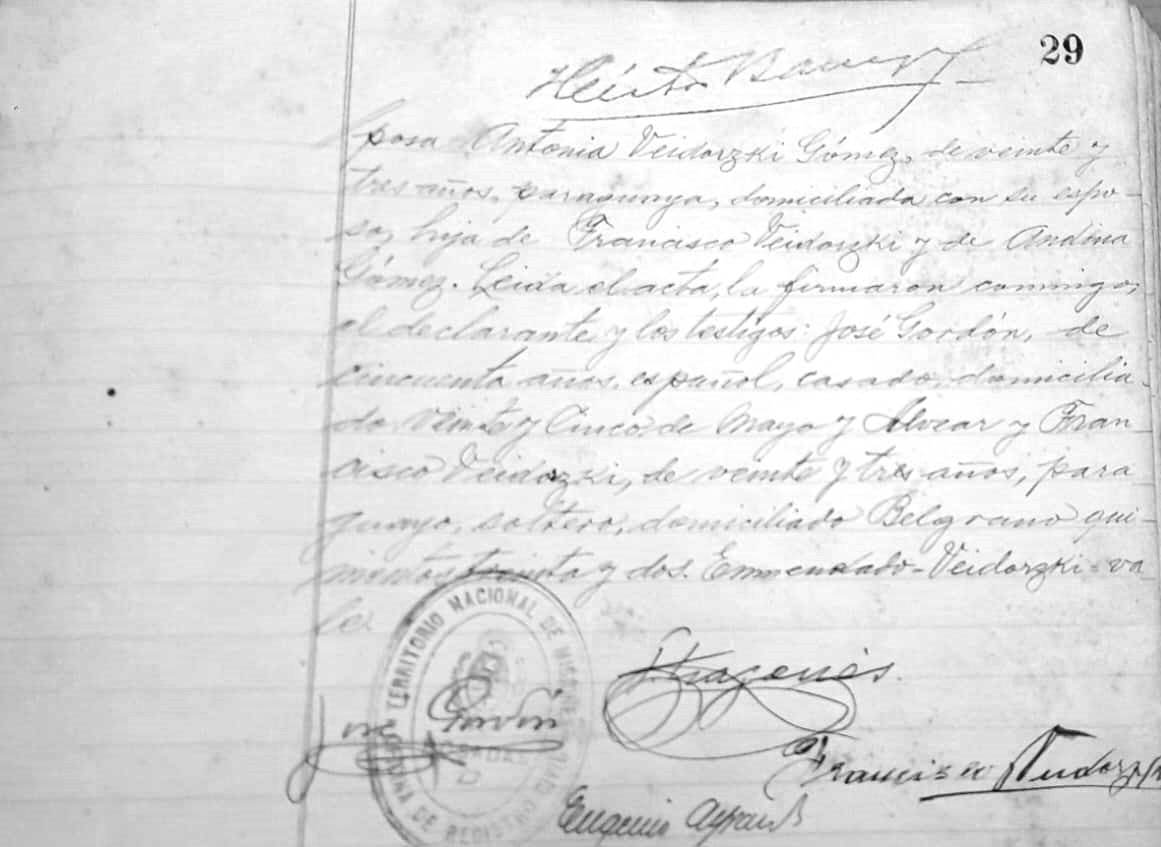 29
Héctor
posa Antonia Veidorzki Gómez, de veinte y
tres años, paraguaya, domiciliada con su espo-
so, hija de Francisco Veidorzki y de Andrea
Gómez. Leida el acta, la firmaron conmigo,
el declarante y los testigos: José Gordón, de
cincuenta años, español, casado, domicilia-
do Veinte y Cinco de Mayo y Alvear y Fran-
cisco Veidozki, de veinte y tres años, para
guayo, soltero, domiciliado Belgrano qui-
nientos treinta y dos. Enmendado-Veidorzki-va
le.
TERRITORIO NACIONAL DE MISIONES
DE REGISTRO
José Gordón
Francisco
Eugenio